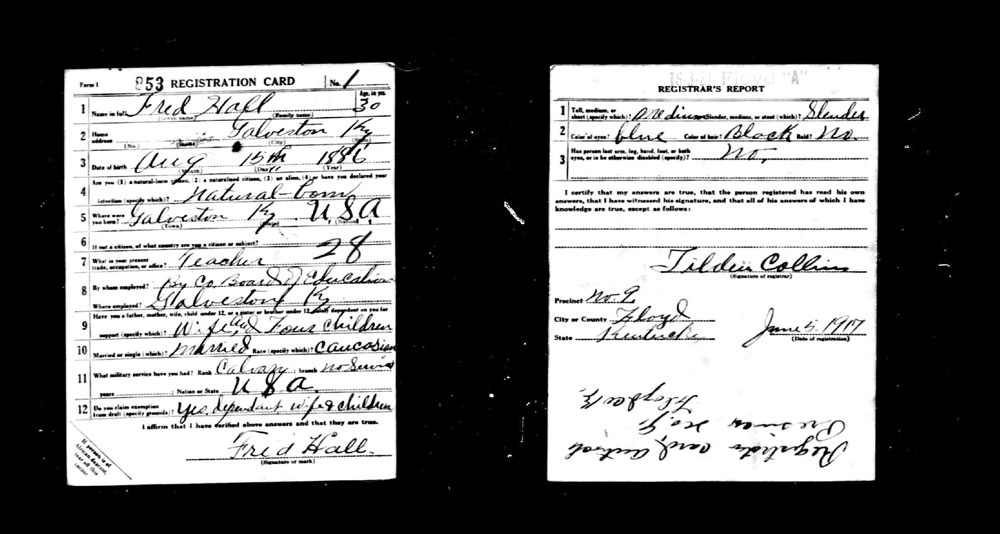 Form 1 853 REGISTRATION CARD No. 1
1 Name in full Fred Hall Age, in yrs. 30
(Given name) (Family name)
2 Home address Galveston Ky
(No.) (Street) (City)
3 Date of birth Aug 15th 1886
(Month) (Day) (Year)
Are you (1) a natural-born citizen, (2) a naturalized citizen, (3) an alien, (4) or have you declared your
4 intention (specify which)? Natural-born
5 Where were you born? Galveston Ky U.S.A
(Town) (State) (Nation)
6 If not a citizen, of what country are you a citizen or subject?
7 What is your present trade, occupation, or office? Teacher 28
8 By whom employed? By Co Board of Education
Where employed? Galveston Ky
Have you a father, mother, wife, child under 12, or a sister or brother under 12, solely dependent on you for
9 support (specify which)? Wife and Four Children
10 Married or single (which)? Married Race (specify which)? Caucasian
11 What military service have you had? Rank Calvary ; branch no Service
years ; Nation or State U S A.
12 Do you claim exemption from draft (specify grounds)? Yes, dependent wife & children
I affirm that I have verified above answers and that they are true.
Fred Hall.
(Signature or mark)
If person is of African descent, tear off this corner
"A"
REGISTRAR'S REPORT
1 Tall, medium, or short (specify which)? Medium Slender, medium, or stout (which)? Slender
2 Color of eyes? blue Color of hair? Black Bald? No.
3 Has person lost arm, leg, hand, foot, or both eyes, or is he otherwise disabled (specify)? No,
I certify that my answers are true, that the person registered has read his own
answers, that I have witnessed his signature, and that all of his answers of which I have
knowledge are true, except as follows:
Tilden Collins
(Signature of registrar)
Precinct No. 9
City or County Floyd
State Kentucky June 5, 1917
(Date of registration)
Registrars card,
Floyd Co Ky.